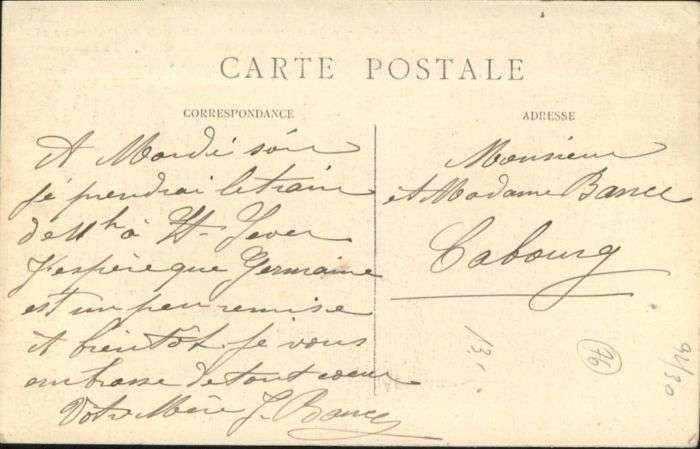 CARTE POSTALE
CORRESPONDANCE
ADRESSE
A Mardi soir
je prendrai le train
de 11h à St-Sever
J'espère que Germaine
est un peu remise
A bientôt je vous
embrasse de tout coeur
Votre Mère J. Bance
Monsieur
et Madame Bance
Cabourg
13.
76